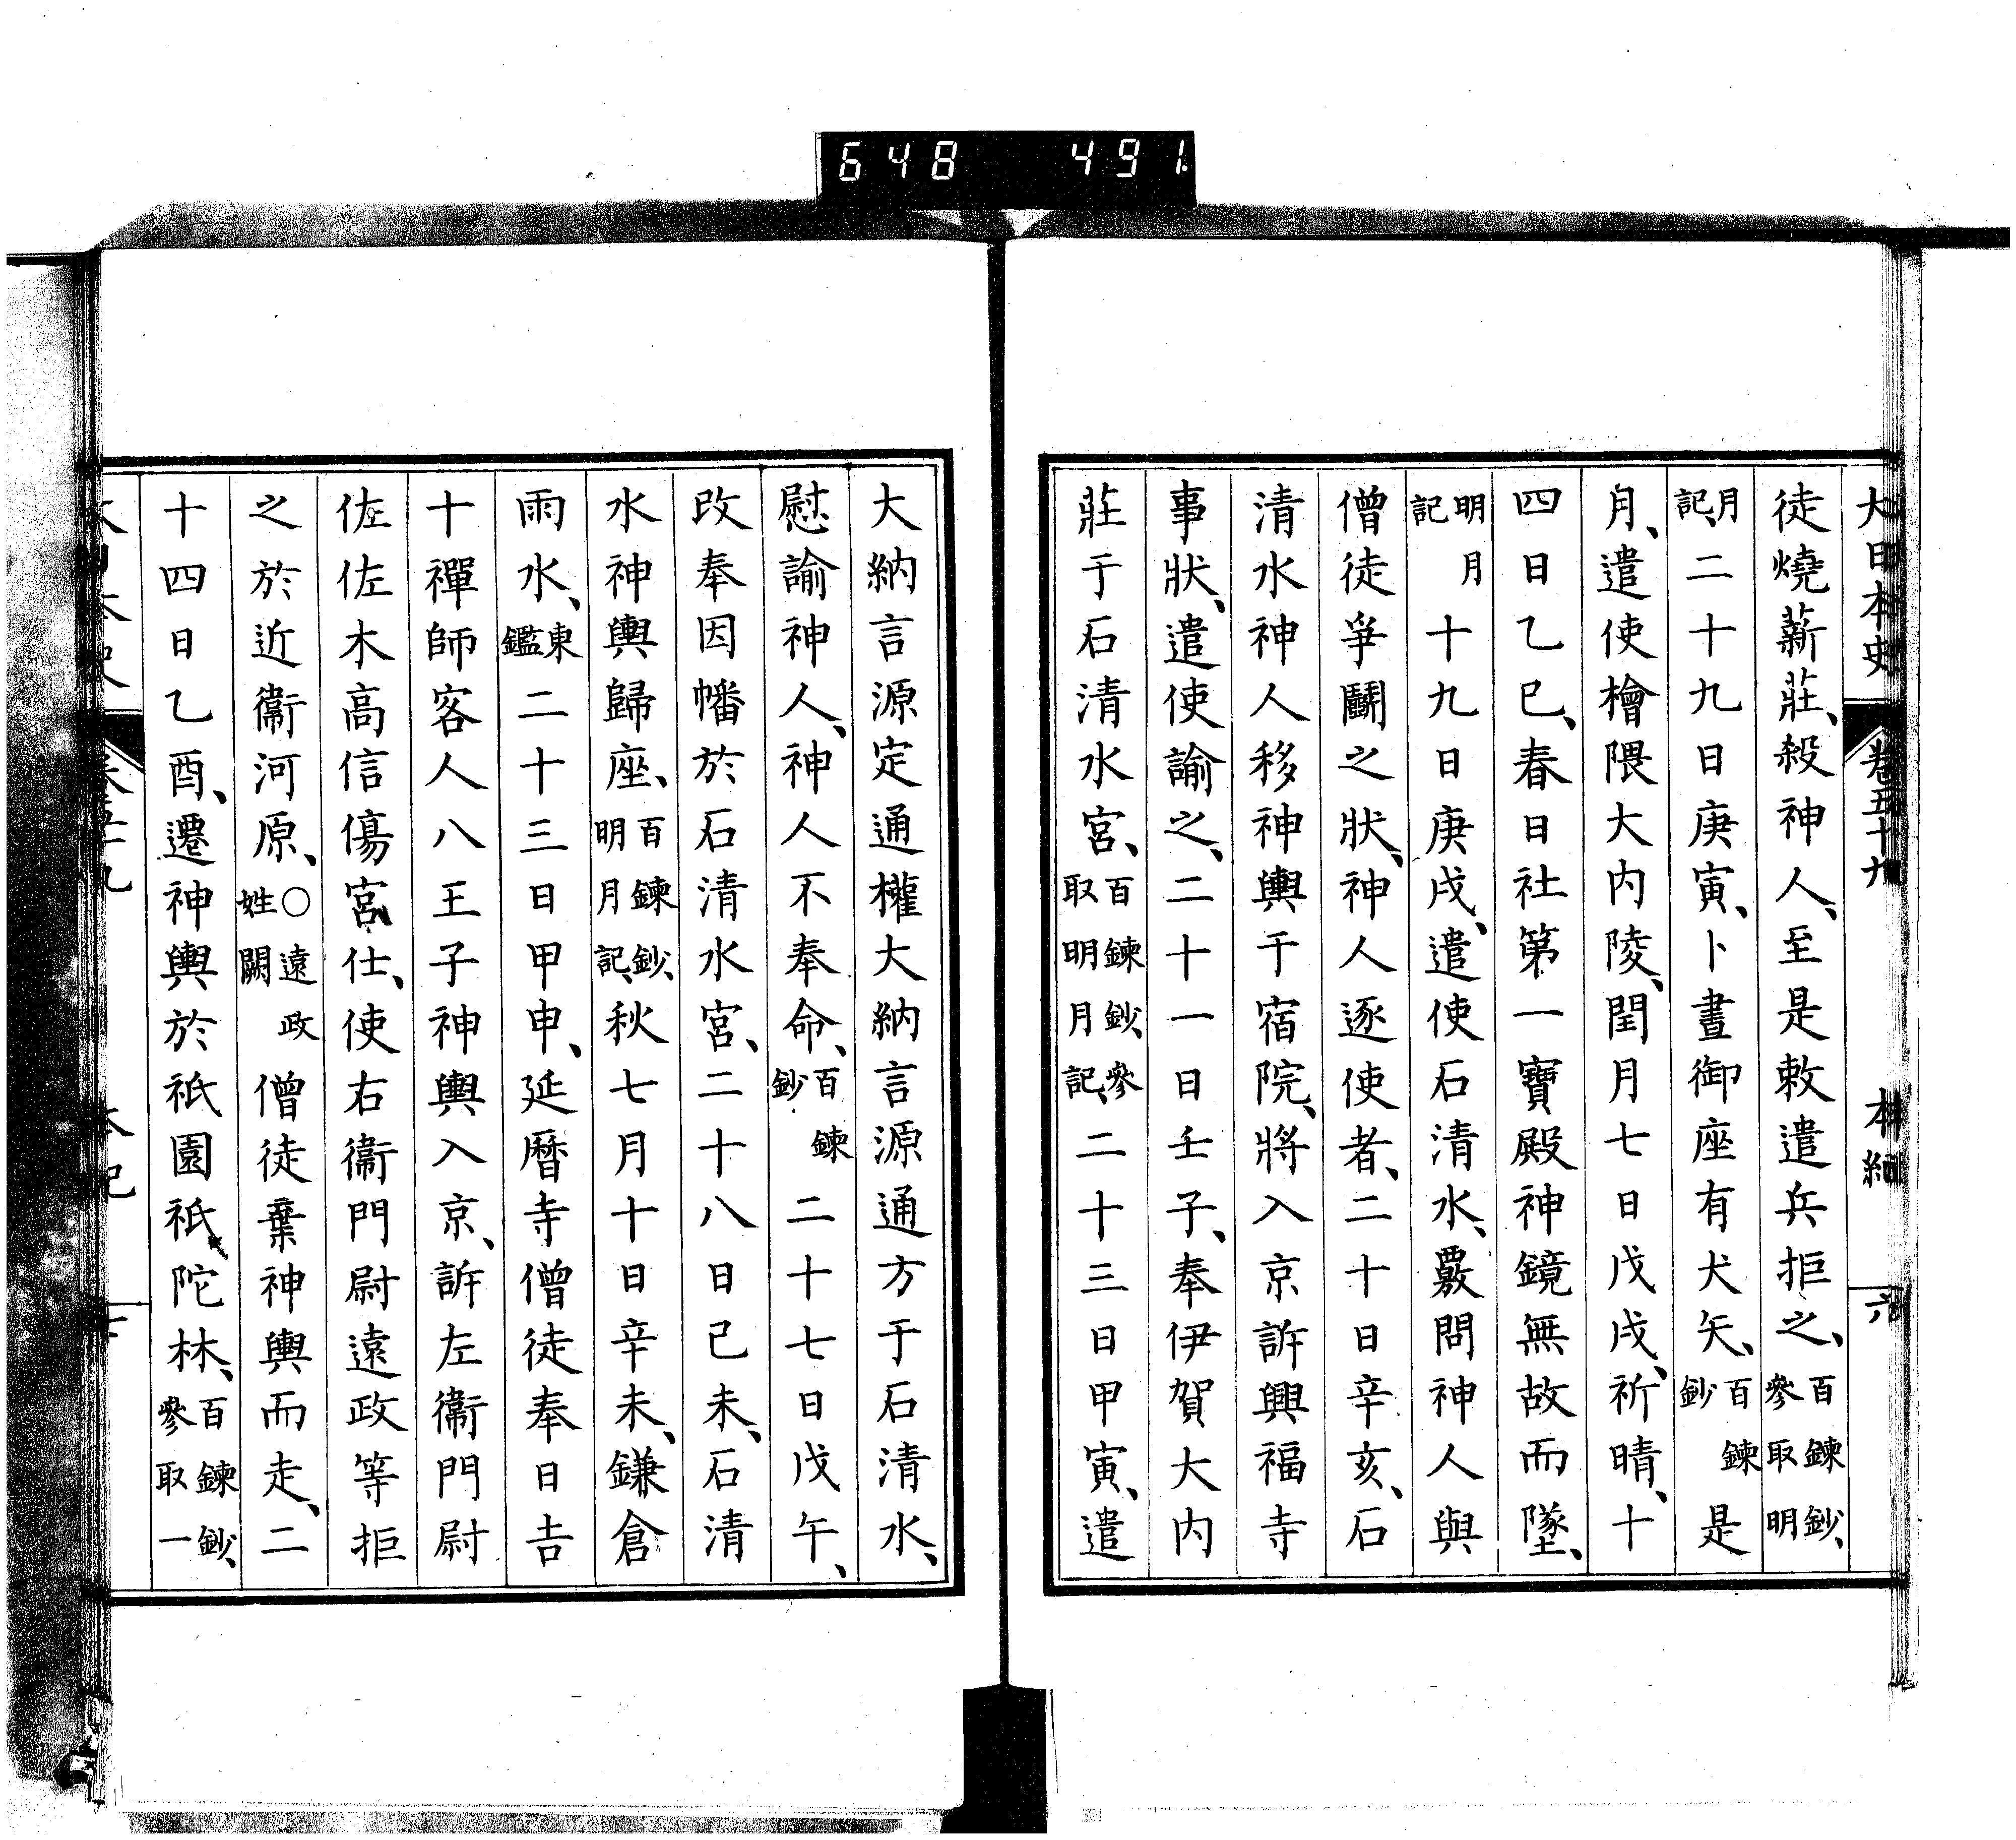 648 491
大日本史 卷五十九 本紀 六
徒燒薪莊、殺神人、至是敕遣兵拒之、百鍊鈔、參取明
月記、二十九日庚寅、卜晝御座有犬矢、百鍊鈔是
月、遣使檜隈大内陵、閏月七日戊戌、祈晴、十
四日乙巳、春日社第一寶殿神鏡無故而墜、
明月記十九日庚戌、遣使石清水、覈問神人與
僧徒爭鬭之狀、神人逐使者、二十日辛亥、石
清水神人移神輿于宿院、將入京訴興福寺
事狀、遣使諭之、二十一日壬子、奉伊賀大内
莊于石清水宮、百鍊鈔、參取明月記、二十三日甲寅、遣
大納言源定通權大納言源通方于石清水、
慰諭神人、神人不奉命、百鍊鈔二十七日戊午、
改奉因幡於石清水宮、二十八日己未、石清
水神輿歸座、百鍊鈔、明月記、秋七月十日辛未、鎌倉
雨水、東鑑二十三日甲申、延曆寺僧徒奉日吉
十禪師客人八王子神輿入京、訴左衞門尉
佐佐木高信傷宮仕、使右衞門尉遠政等拒
之於近衞河原、○遠政姓闕僧徒棄神輿而走、二
十四日乙酉、遷神輿於祇園祇陀林、百鍊鈔、參取一